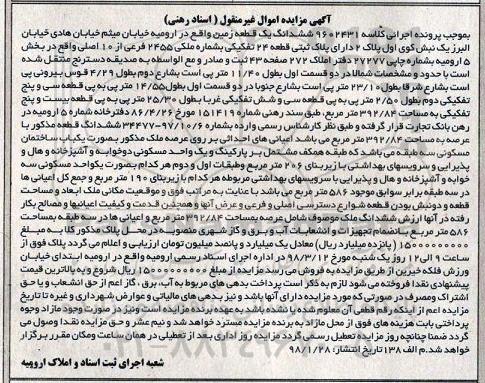 آگهی مزایده اموال غیرمنقول ( اسناد رهنی )
بموجب پرونده اجرائی کلاسه ۹۶۰۲۴۳۱ ششدانگ یک قطعه زمین واقع در ارومیه خیابان میثم خیابان هادی خیابان
البرز یک نبش کوی اول پلاک ۲ دارای پلاک ثبتی قطعه ۲۴ تفکیکی بشماره ملکی ۲۴۵۵ فرعی از ۱۰ اصلی واقع در بخش
۵ ارومیه بشماره چاپی ۲۷۲۷۷ دفتر املاک ۲۷۲ صفحه ۴۳ ثبت و صادر و مع الواسطه به صدیقه دسترنج منتقل شده
است با حدود و مشخصات شمالا در دو قسمت اول بطول ۱۱/۴۰ متر پی است بشارع دوم بطول ۴/۲۹ قوس بیرونی پی
است بشارع شرقا بطول ۲۳/۱۰ متر پی است بشارع جنوبا در دو قسمت اول بطول ۱۴/۵۵ متر پی به پی قطعه سی و پنج
تفکیکی دوم بطول ۲/۵۰ متر پی به پی قطعه سی و شش تفکیکی غربا بطول ۲۵/۳۰ متر پی به پی قطعه بیست و پنج
تفکیکی به مساحت ۳۹۲/۸۴ متر مربع، طبق سند رهنی شماره ۱۵۱۴۱۹ مورخ ۸۶/۴/۲۶ دفترخانه شماره ۵ ارومیه در
رهن بانک تجارت قرار گرفته و طبق نظر کارشناس رسمی وارده بشماره ۳۴۴۷۰-۹۷/۱۰/۶ ششدانگ قطعه مذکور با
عرصه به مساحت ۳۹۲/۸۴ متر مربع می باشد اعیانی های احداثی بر روی عرصه ملک مذکور بصورت یکباب ساختمان
مسکونی سه طبقه می باشد که طبقه همکف مشتمل بر پارکینگ و یک واحد مسکونی دوخوابه و آشپزخانه و هال و
پذیرایی و سرویسهای بهداشتی با زیربنای ۲۰۶ متر مربع و طبقات اول و دوم هر کدام بصورت یکواحد مسکونی سه
خوابه و آشپزخانه و هال و پذیرایی با سرویسهای بهداشتی مربوطه هر کدام با زیربنای ۱۹۰ متر مربع و جمع کل اعیانی ها
در سه طبقه برابر سوابق موجود ۵۸۶ متر مربع می باشد با عنایت به مراتب فوق و موقعیت مکانی ملک ابعاد و مساحت
قطعه و دونبش بودن قطعه شوارع دسترسی اصلی و فرعی و عرض آنها و همچنین قدمت و کیفیت اعیانیها و مصالح بکار
رفته در آنها ارزش ششدانگ ملک موصوف شامل عرصه بمساحت ۳۹۲/۸۴ متر مربع و اعیانی ها در سه طبقه بمساحت
۵۸۶ متر مربع بانضمام تجهیزات و انشعابات آب و برق و گاز شهری منصوبه در محل پلاک مذکور کلا به مبلغ
۱۵۰۰۰۰۰۰۰۰۰ ( پانزده میلیارد ریال) معادل یک میلیارد و پانصد میلیون تومان ارزیابی و اعلام می گردد پلاک فوق از
ساعت ۹ الی ۱۲ روز یک شنبه مورخ ۹۸/۳/۱۲ در اداره اجرای اسناد رسمی ارومیه واقع در ارومیه ابتدای خیابان
ورزش فلکه خیرین از طریق مزایده به فروش می رسد مزایده از مبلغ ۱۵۰۰۰۰۰۰۰۰۰ ریال شروع و به بالاترین قیمت
پیشنهادی نقدا فروخته می شود لازم به ذکر است پرداخت بدهی های مربوط به آب، برق، گاز اعم از حق انشعاب و یا حق
اشتراک ومصرف در صورتی که مورد مزایده دارای آنها باشد و نیز بدهی های مالیاتی و عوارض شهرداری و غیره تا تاریخ
مزایده اعم از اینکه رقم قطعی آن معلوم شده یا نشده باشد به عهده برنده مزایده است و نیز در صورت وجود مازاد وجوه
پرداختی بابت هزینه های فوق از محل مازاد به برنده مزایده مسترد خواهد شد و نیم عشر و حق مزایده نقدا وصول می
گردد ضمنا چنانچه روز مزایده تعطیل رسمی گردد مزایده روز اداری بعد از تعطیلی در همان ساعت ومکان مقرر برگزار
خواهد شد. م الف ۱۳۸ تاریخ انتشار: ۹۸/۱/۲۸
شعبه اجرای ثبت اسناد و املاک ارومیه